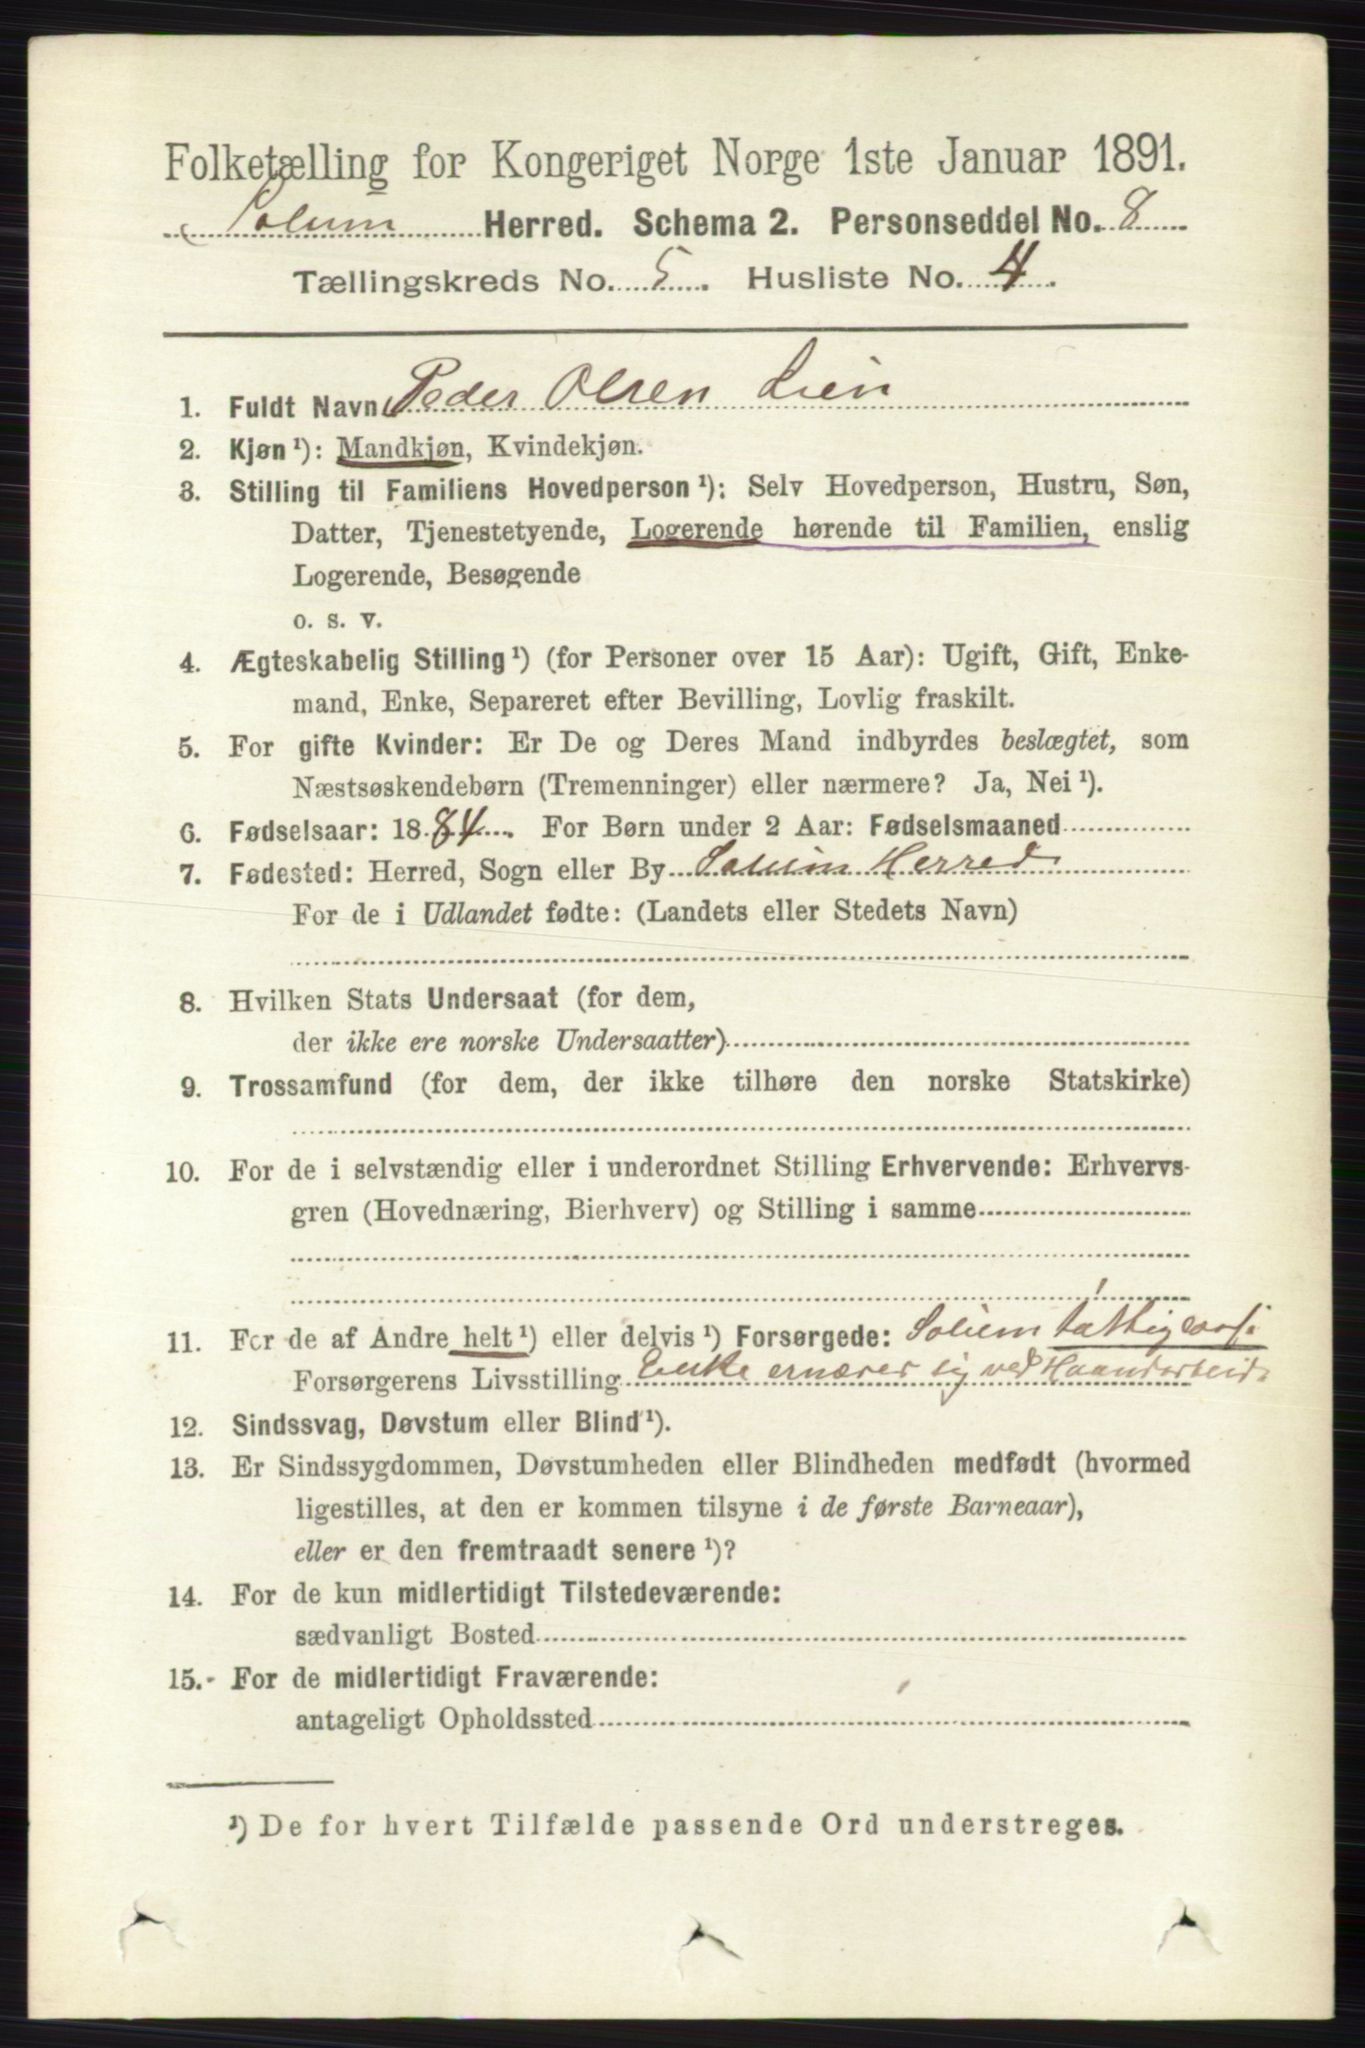 Folketælling for Kongeriget Norge 1ste Januar 1891.
Solum Herred. Schema 2. Personseddel No. 8
Tællingskreds No. 5. Husliste No. 4.
1. Fuldt Navn Peder Olsen Lien
2. Kjøn ¹): Mandkjøn, Kvindekjøn.
3. Stilling til Familiens Hovedperson ¹): Selv Hovedperson, Hustru, Søn,
Datter, Tjenestetyende, Logerende hørende til Familien, enslig
Logerende, Besøgende
o. s. v.
4. Ægteskabelig Stilling ¹) (for Personer over 15 Aar): Ugift, Gift, Enke-
mand, Enke, Separeret efter Bevilling, Lovlig fraskilt.
5. For gifte Kvinder: Er De og Deres Mand indbyrdes beslægtet, som
Næstsøskendebørn (Tremenninger) eller nærmere? Ja, Nei ¹).
6. Fødselsaar: 1884. For Børn under 2 Aar: Fødselsmaaned
7. Fødested: Herred, Sogn eller By Solum Herred
For de i Udlandet fødte: (Landets eller Stedets Navn)
8. Hvilken Stats Undersaat (for dem,
der ikke ere norske Undersaatter)
9. Trossamfund (for dem, der ikke tilhøre den norske Statskirke)
10. For de i selvstændig eller i underordnet Stilling Erhvervende: Erhvervs-
gren (Hovednæring, Bierhverv) og Stilling i samme
11. For de af Andre helt ¹) eller delvis ¹) Forsørgede: Solum
Forsørgerens Livsstilling Enke ernærer sig ved Haandarbeide
12. Sindssvag, Døvstum eller Blind ¹).
13. Er Sindssygdommen, Døvstumheden eller Blindheden medfødt (hvormed
ligestilles, at den er kommen tilsyne i de første Barneaar),
eller er den fremtraadt senere ¹)?
14. For de kun midlertidigt Tilstedeværende:
sædvanligt Bosted
15. For de midlertidigt Fraværende:
antageligt Opholdssted
¹) De for hvert Tilfælde passende Ord understreges.